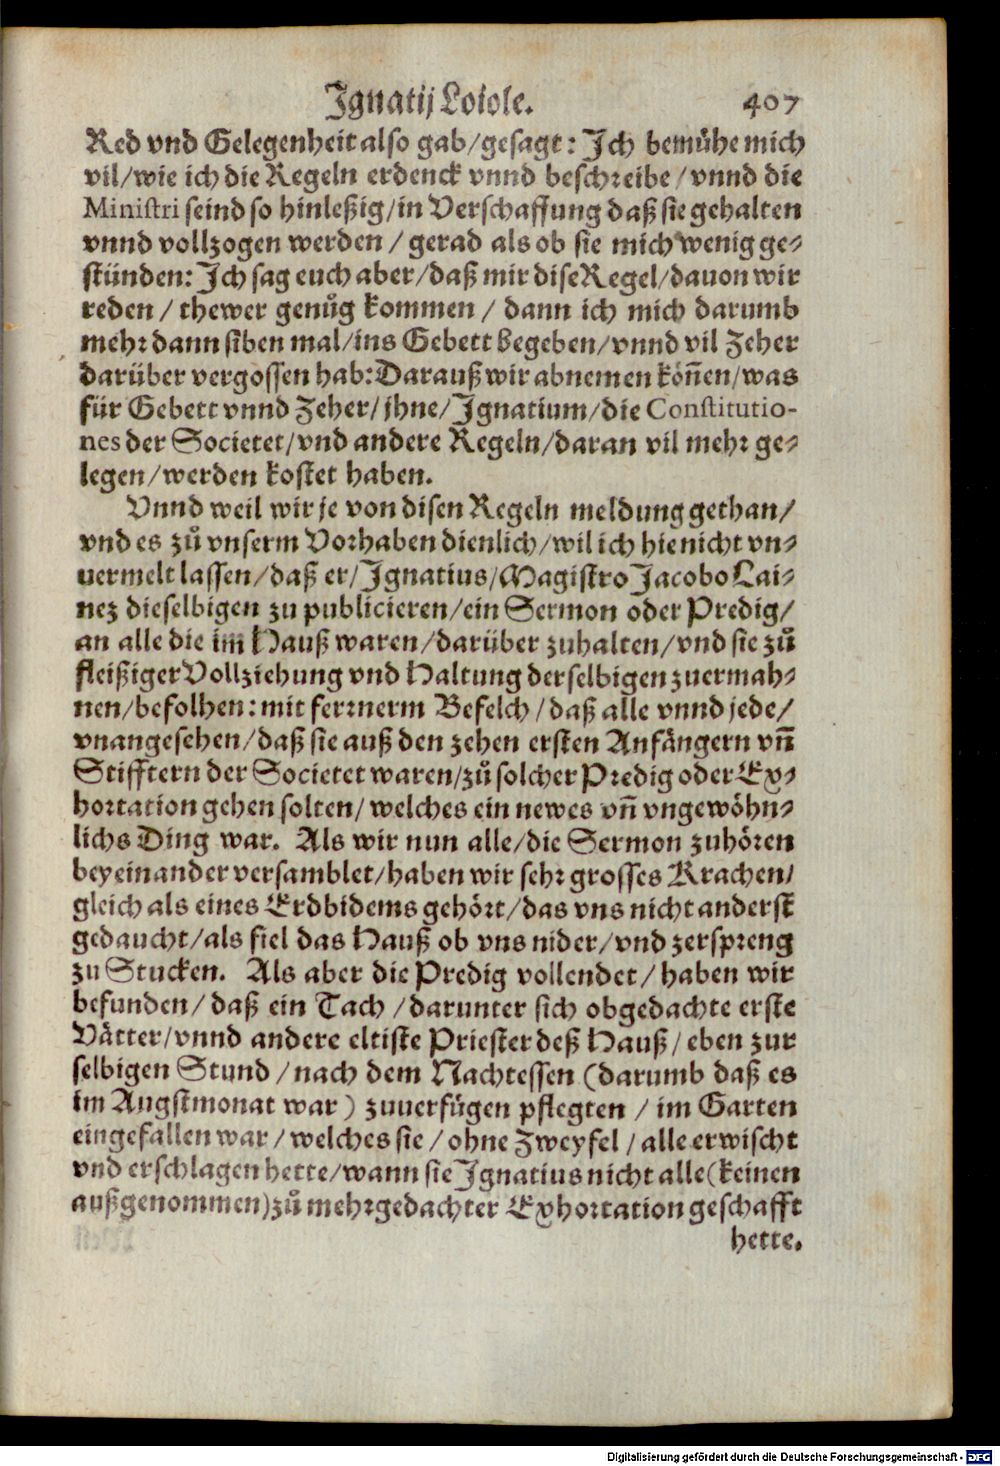 Ignatij Loiole. 407
Red vnd Gelegenheit also gab/gesagt: Ich bemühe mich
vil/wie ich die Regeln erdenck vnnd beschreibe/vnnd die
Ministri seind so hinleßig/in Verschaffung daß sie gehalten
vnnd vollzogen werden/ gerad als ob sie mich wenig ge-
stünden: Ich sag euch aber/daß mir dise Regel/dauon wir
reden/ thewer genůg kommen/ dann ich mich darumb
mehr dann siben mal/ins Gebett begeben/vnnd vil Zeher
darüber vergossen hab: Darauß wir abnemen köñen/was
für Gebett vnnd Zeher/jhne/Ignatium/die Constitutio-
nes der Societet/vnd andere Regeln/daran vil mehr ge-
legen/werden kostet haben.
Vnnd weil wir je von disen Regeln meldung gethan/
vnd es zů vnserm Vorhaben dienlich/wil ich hie nicht vn-
uermelt lassen/daß er/Ignatius/Magistro Jacobo Lai-
nez dieselbigen zu publicieren/ein Sermon oder Predig/
an alle die im Hauß waren/darüber zuhalten/vnd sie zů
fleißiger Vollziehung vnd Haltung derselbigen zuermah-
nen/befolhen: mit ferrnerm Befelch/daß alle vnnd jede/
vnangesehen/daß sie auß den zehen ersten Anfängern vñ
Stifftern der Societet waren/zů solcher Predig oder Ex-
hortation gehen solten/welches ein newes vñ vngewöhn-
lichs Ding war. Als wir nun alle/die Sermon zuhören
beyeinander versamblet/haben wir sehr grosses Krachen/
gleich als eines Erdbidems gehört/das vns nicht anderst
gedaucht/als fiel das Hauß ob vns nider/vnd zerspreng
zu Stucken. Als aber die Predig vollendet/haben wir
befunden/daß ein Tach/darunter sich obgedachte erste
Vätter/vnnd andere eltiste Priester deß Hauß/eben zur
selbigen Stund/nach dem Nachtessen (darumb daß es
im Augstmonat war) zuuerfügen pflegten/im Garten
eingefallen war/welches sie/ohne Zweyfel/alle erwischt
vnd erschlagen hette/wann sie Ignatius nicht alle (keinen
außgenommen) zů mehrgedachter Exhortation geschafft
hette.
Digitalisierung gefördert durch die Deutsche Forschungsgemeinschaft - DFG